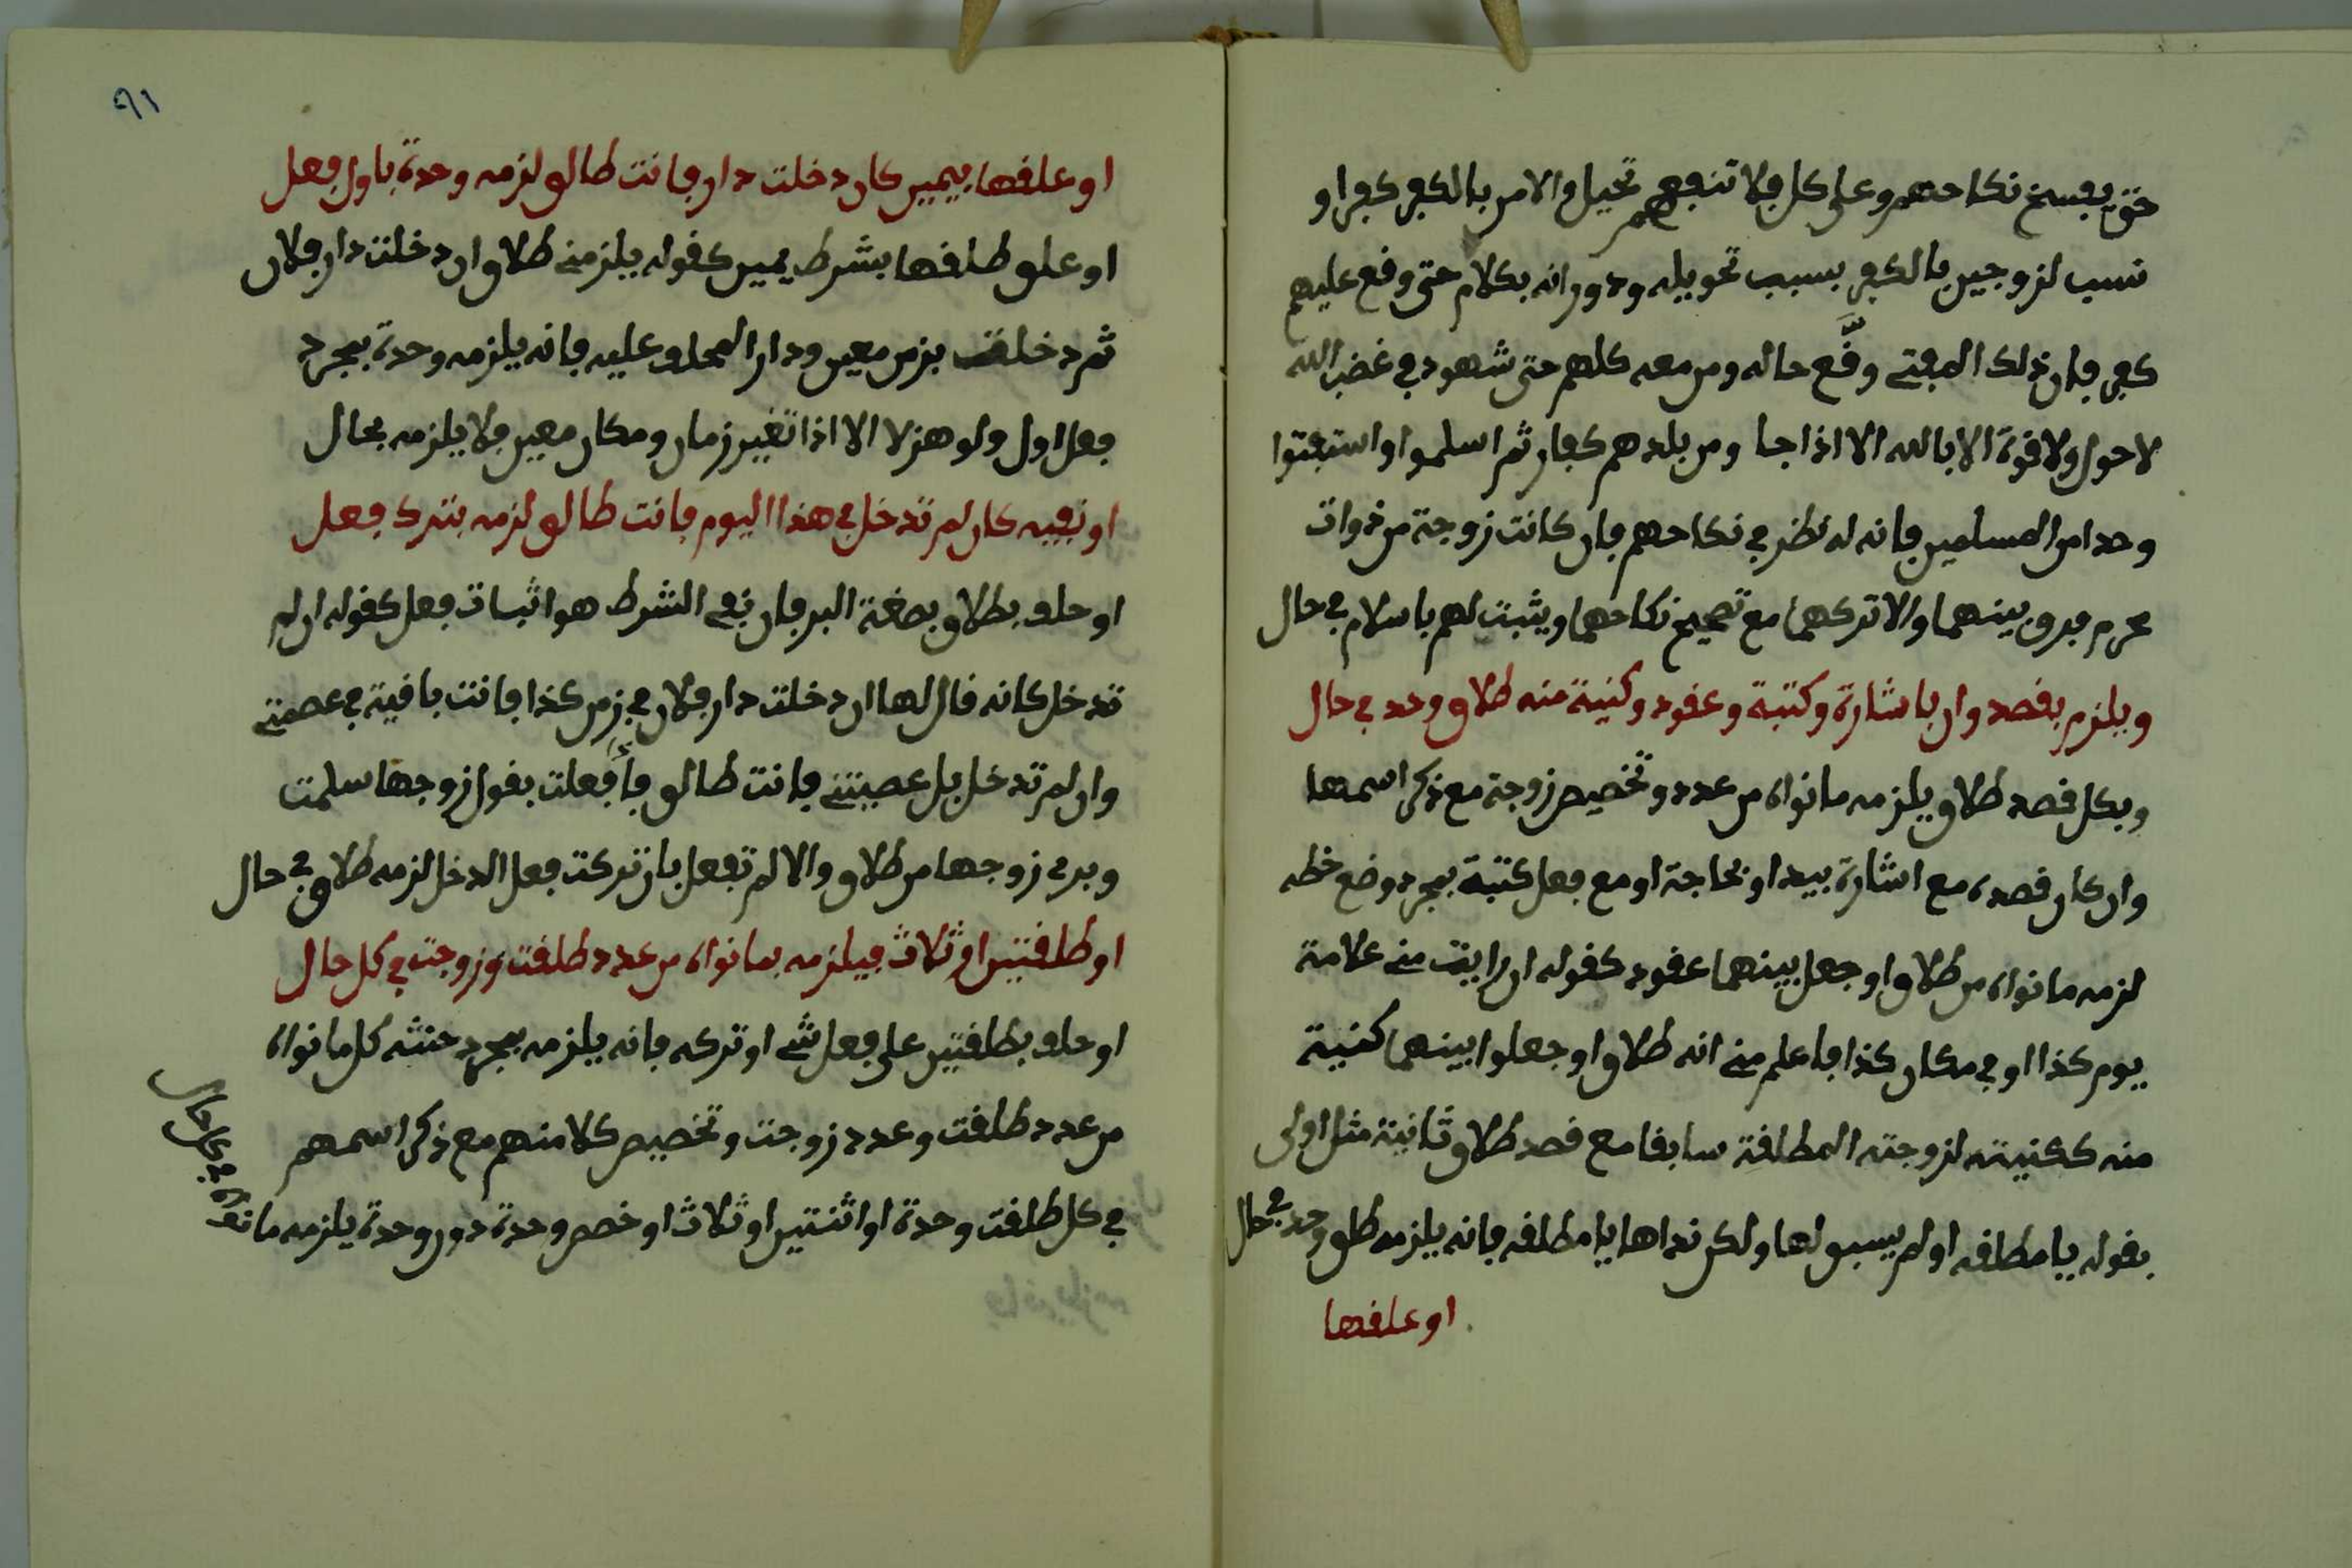 حتى يفسخ نكاحهم وعلى كل فلا تنفعهم تحيل والامر بالكفر كفر او
نسب لزوجين بالكفر بسبب تحويله ودورانه بكلام حتى وقع عليهم
كفر فان ذلك المفتے وقَّع حاله ومن معه كلهم حتى شهود في غضب الله
لا حول ولا قوة الا بالله الا اذا جا ومن بلدهم كفار ثم اسلموا واستفتوا
وحدا من المسلمين فانه له نظر في نكاحهم فان كانت زوجة من ذوات
محرم فرق بينهما والا تركهما مع تصحيح نكاحهما ويثبت لهم باسلام في حال
ويلزم بقصد وان باشارة وكتبة وعقود وكنية منه طلاق وحد في حال
وبكل قصد طلاق يلزمه ما نواه من عدد وتخصيص زوجة مع ذكر اسمها
وان كان قصده مع اشارة بيد او بحاجة او مع فعل كتبة بمجرد وضع خطه
لزمه ما نواه من طلاق او جعل بينهما عقود كقوله ان رايت منے علامة
يوم كذا او في مكان كذا فاعلم منے انه طلاق او جعلوا بينهما كنية
منه ككنيته لزوجته المطلقة سابقا مع قصد طلاق ثانية مثل اولى
بقوله يا مطلقه او لم يسبق لها ولكن نداها يا مطلقه فانه يلزمه طلق وحد في حال
او علقها
٩١
او علقها بيمين كان دخلت دار فانت طالق لزمه وحدة باول فعل
او علق طلقها بشرط يمين كقوله يلزمنے طلاق ان دخلت دار فلان
ثم دخلت بزمن معين ودار المحلوف عليه فانه يلزمه وحدة بمجرد
فعل اول ولو هزلا الا اذا تغير زمان ومكان معين فلا يلزمه بحال
او نفيه كان لم تدخل في هذا اليوم فانت طالق لزمه بترك فعل
او حلف بطلاق بصغة البر فان نفي الشرط هو اثبات فعل كقوله ان لم
تدخل كانه قال لها ان دخلت دار فلان في زمن كذا فانت باقية في عصمتے
وان لم تدخل بل عصيتنے فانت طالق فاذا فعلت بقول زوجها سلمت
وبرئ زوجها من طلاق والا لم تفعل بان تركت فعل الدخل لزمه طلاق في حال
او طلقتين او ثلاث فيلزمه بما نواه من عدد طلقت وزوجت في كل حال
او حلف بطلقتين على فعل شے او تركه فانه يلزمه بمجرد حنثه كل ما نواه
من عدد طلقت وعدد زوجت وتخصيص كلا منهم مع ذكر اسمهم
في كل طلقت وحدة او اثنتين او ثلاث او خص وحدة دون وحدة يلزمه ما نواه في كل حال
فانه يلزمه